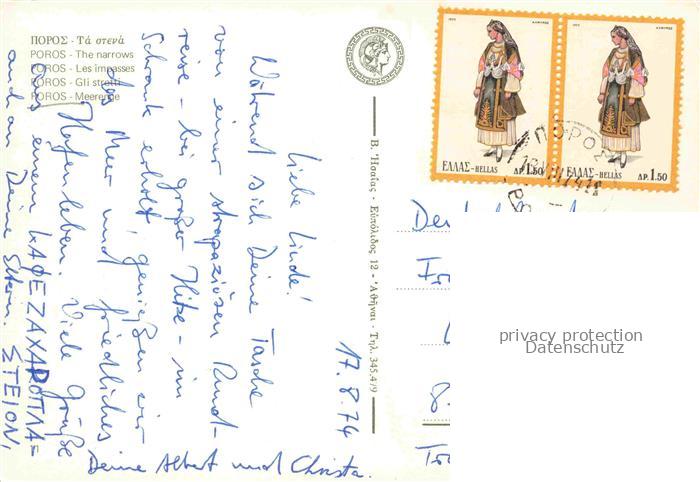 ΠΟΡΟΣ - Τά στενά
POROS - The narrows
POROS - Les impasses
POROS - Gli stretti
POROS - Meerenge
17.8.74
Liebe Linde!
Während sich Deine Tasche
von einer strapaziösen Rund-
reise - bei großer Hitze - im
Schrank erholt, genießen wir
das Meer und friedliches
Hafenleben. Viele Grüße
aus einem ΚΑΦΕΖΑΧΑΡΟΠΛΑ=
ΣΤΕΙΟΝ,
auch an Deine Eltern.
Deine Albert und Christa.
Β. Ἡσαΐας · Εὐπόλιδος 12 - Ἀθῆναι · Τηλ. 345.479
ΕΛΛΑΣ-HELLAS ΔΡ. 1.50
ΕΛΛΑΣ-HELLAS ΔΡ. 1.50
ΠΟΡΟΣ
8.
privacy protection
Datenschutz